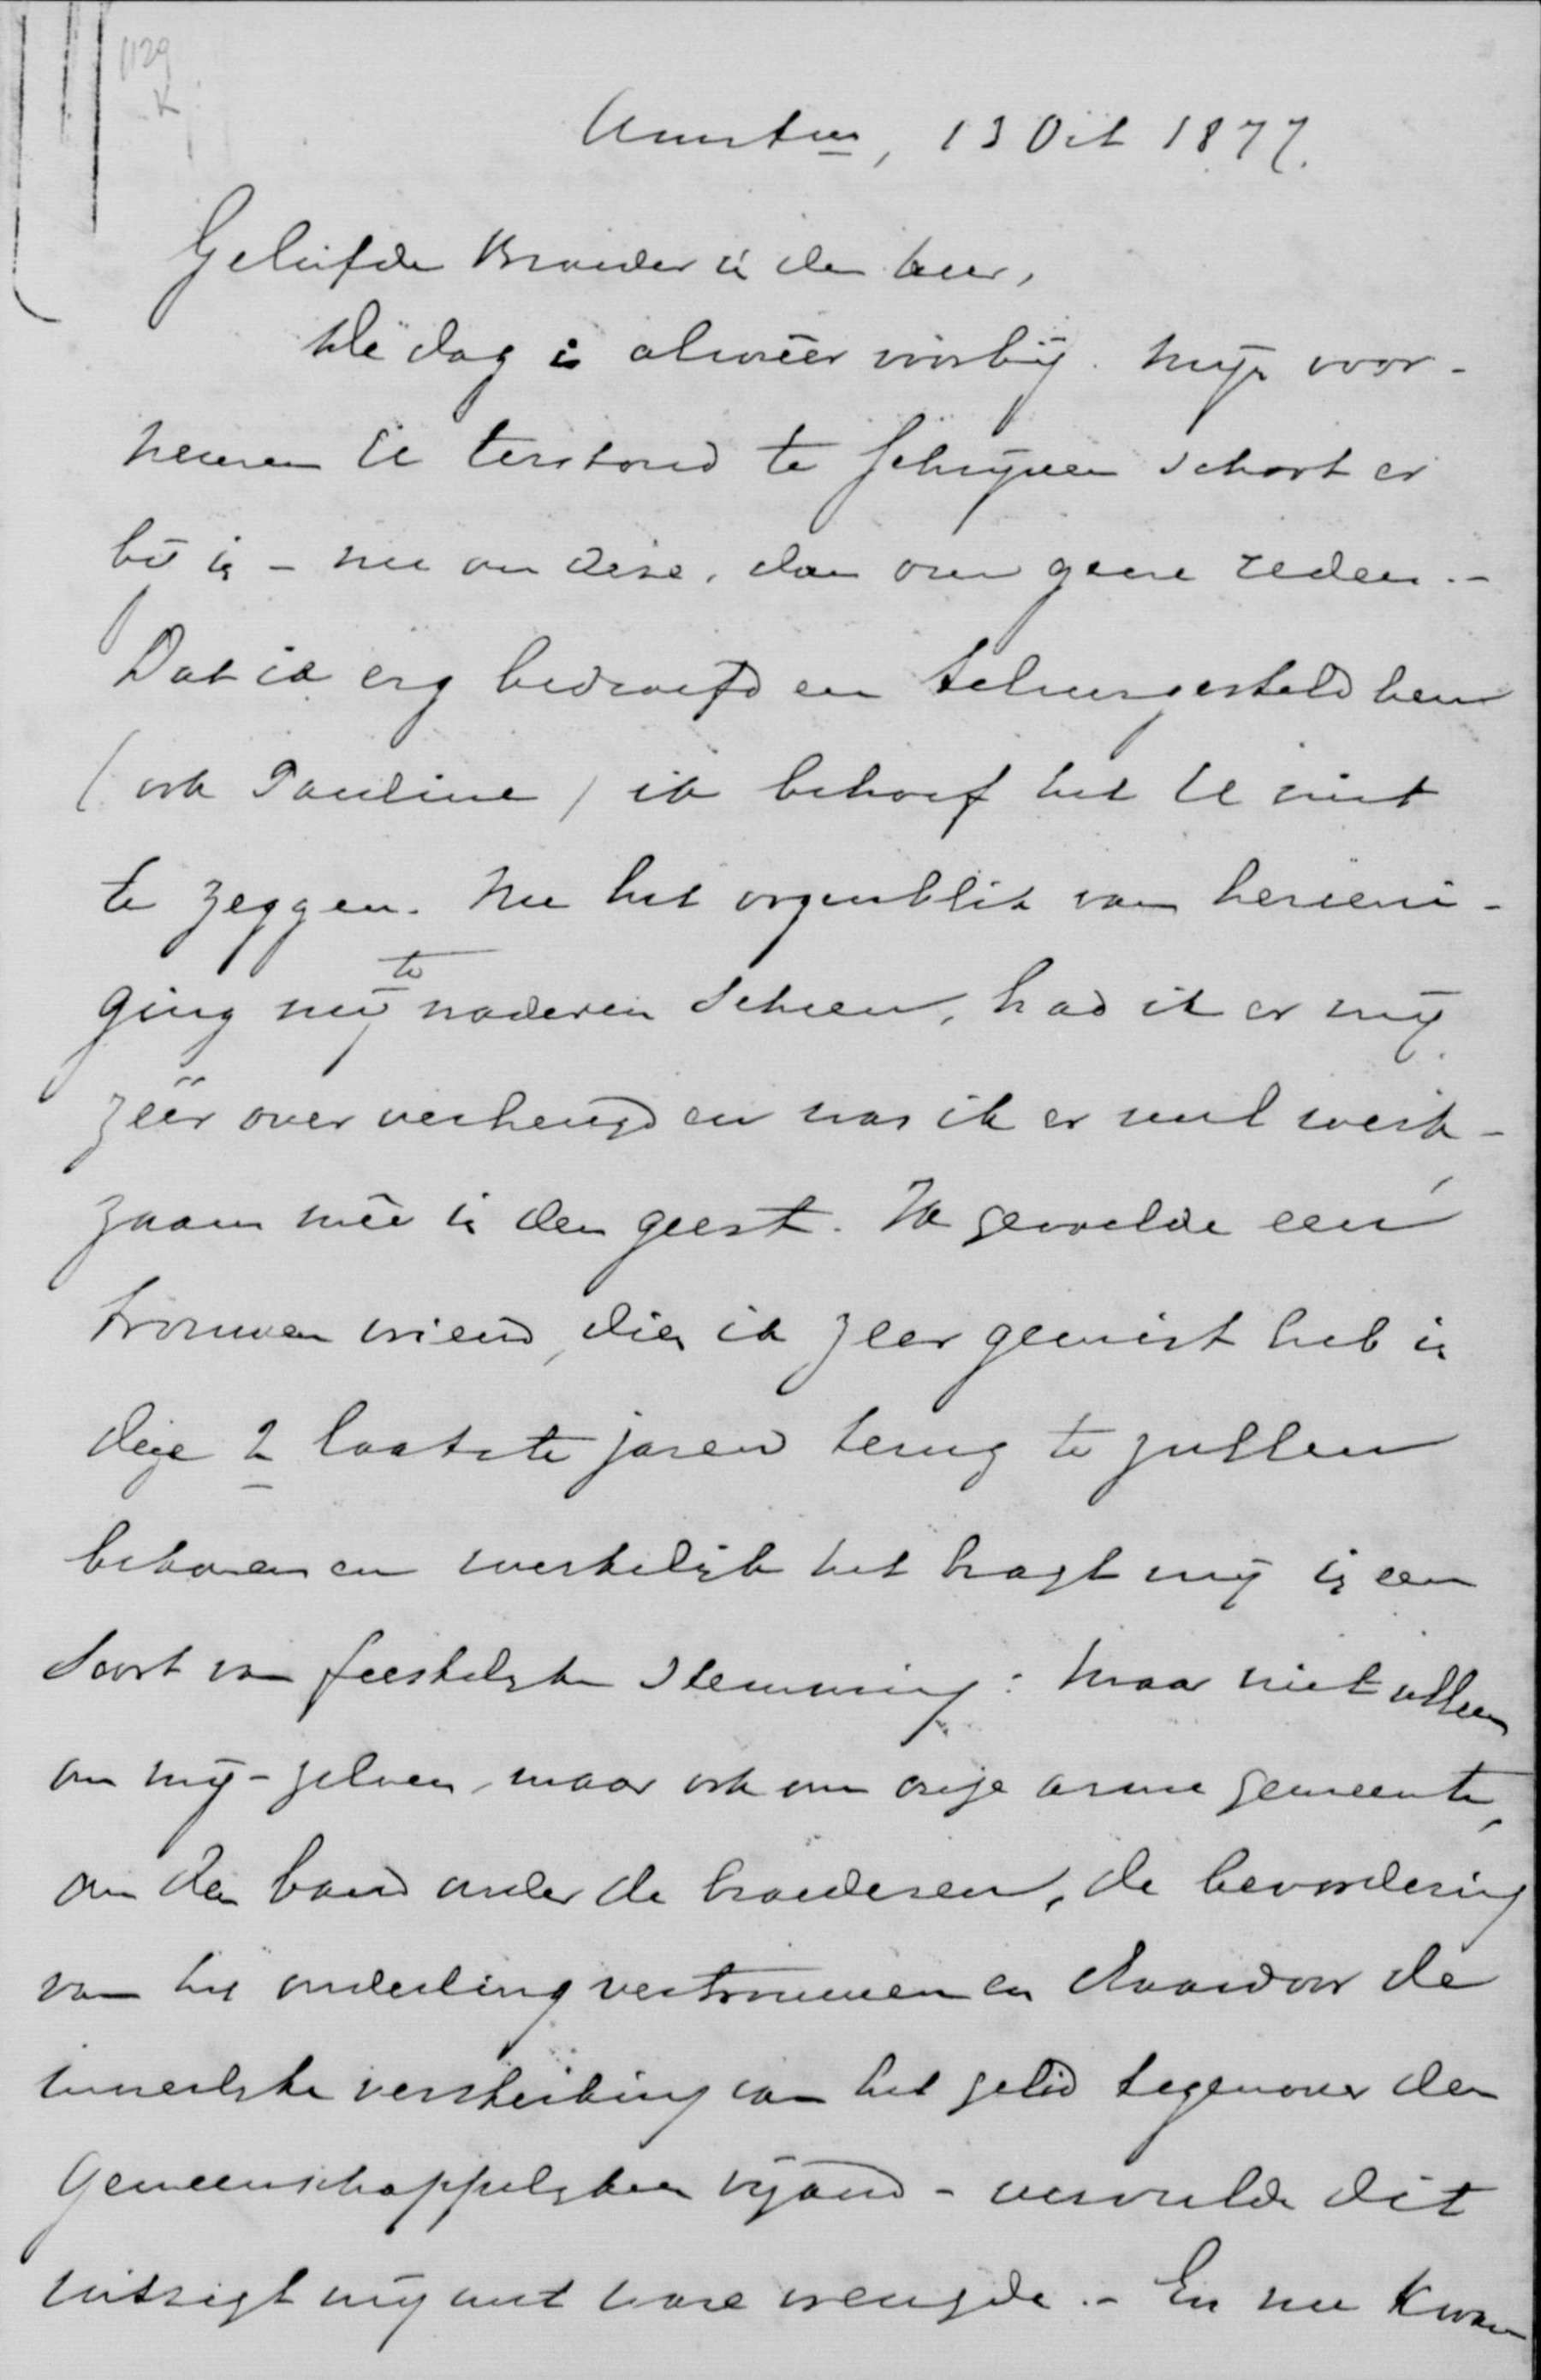 1129
K
Amstm, 13 Oct 1877.
Geliefde Broeder in den heer,
De dag is alweêr voorbij. Mijn voor-
nemen U terstond te schrijven schort er
bij in - nu om deze, dan om gene reden. -
Dat ik erg bedroefd en teleurgesteld ben
(ook Pauline) ik behoef het U niet
te zeggen. Nu het oogenblik van hereeni-
ging mij te naderen scheen, had ik er mij
zeer over verheugd en was ik er veel werk-
zaam mêe in den geest. Ik gevoelde een
trouwen vriend, dien ik zeer gemist heb in
deze 2 laatste jaren terug te zullen
bekomen en werkelijk het bragt mij in een
soort van feestelijke stemming: maar niet alleen
om mij-zelven, maar ook om onze arme gemeente,
om den band onder de broederen, de bevordering
van het onderling vertrouwen en daardoor de
innerlijke versterking van het gelid tegenover den
gemeenschappelijken vijand - vervulde dit
uitzigt mij met ware vreugde. - En nu kwam